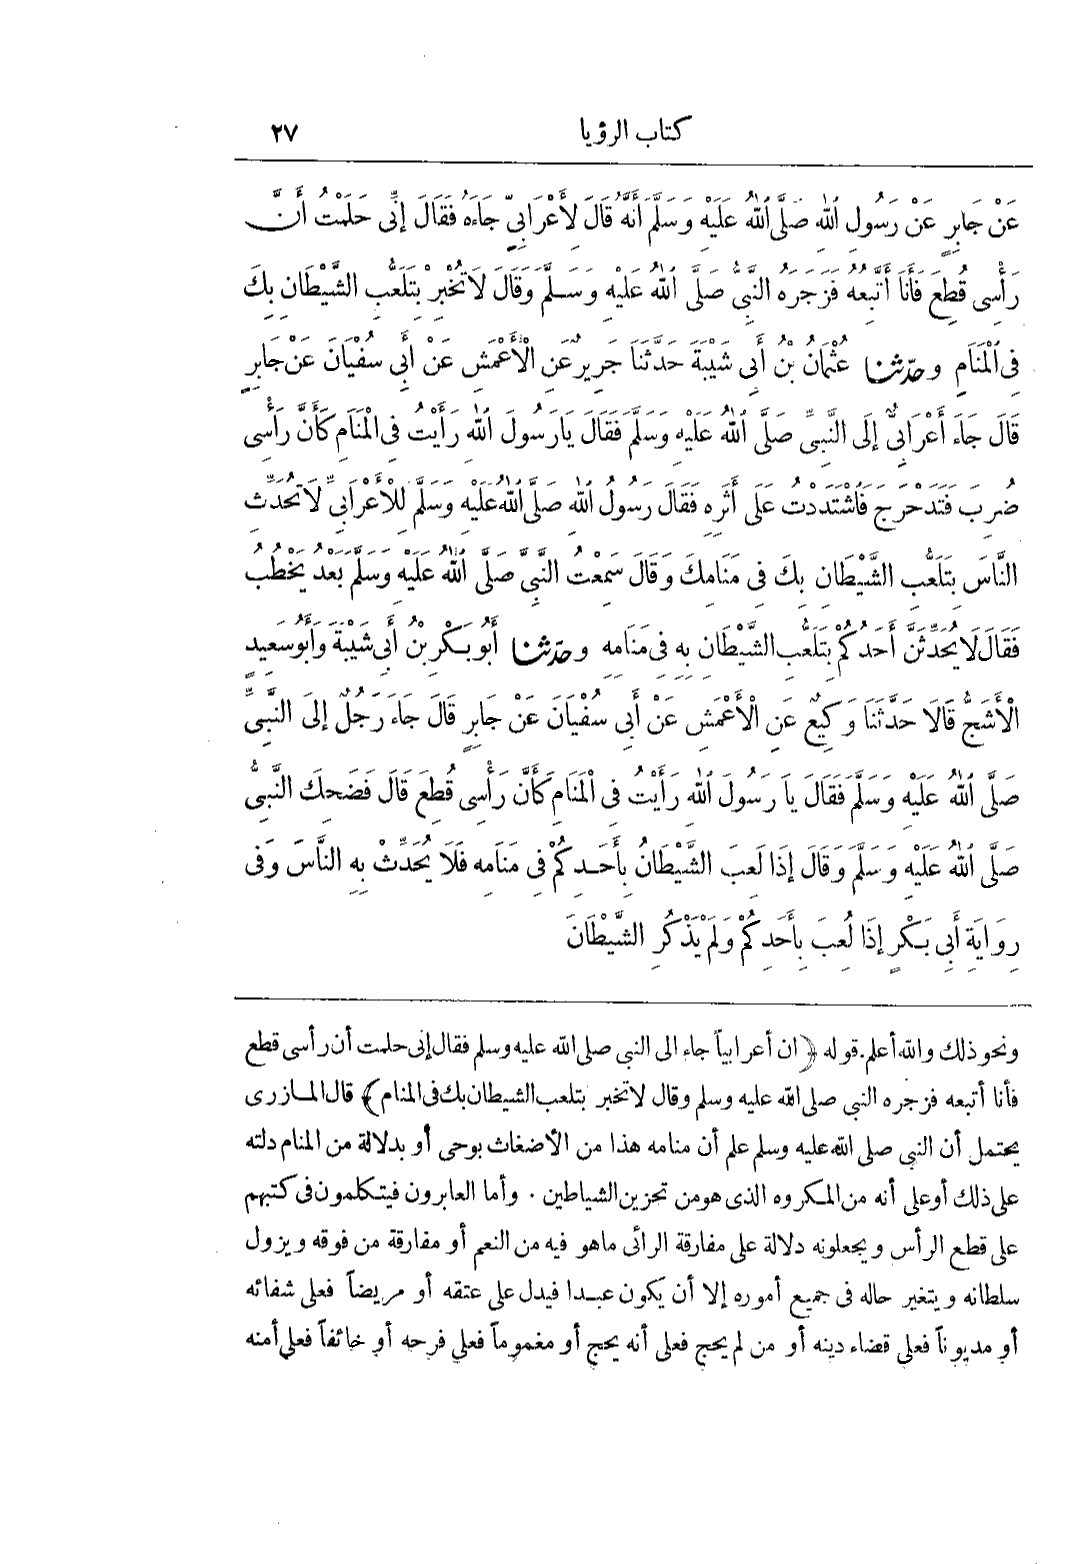 كتاب الرؤيا ٢٧
عَنْ جَابِرٍ عَنْ رَسُولِ اللّٰهِ صَلَّى اللّٰهُ عَلَيْهِ وَسَلَّمَ أَنَّهُ قَالَ لِأَعْرَابِيٍّ جَاءَهُ فَقَالَ إِنِّى حَلَمْتُ أَنَّ
رَأْسِى قُطِعَ فَأَنَا أَتَّبِعُهُ فَزَجَرَهُ النَّبِىُّ صَلَّى اللّٰهُ عَلَيْهِ وَسَلَّمَ وَقَالَ لَا تُخْبِرْ بِتَلَعُّبِ الشَّيْطَانِ بِكَ
فِى الْمَنَامِ وحدّثنا عُثْمَانُ بْنُ أَبِى شَيْبَةَ حَدَّثَنَا جَرِيرٌ عَنِ الْأَعْمَشِ عَنْ أَبِى سُفْيَانَ عَنْ جَابِرٍ
قَالَ جَاءَ أَعْرَابِىٌّ إِلَى النَّبِىِّ صَلَّى اللّٰهُ عَلَيْهِ وَسَلَّمَ فَقَالَ يَا رَسُولَ اللّٰهِ رَأَيْتُ فِى الْمَنَامِ كَأَنَّ رَأْسِى
ضُرِبَ فَتَدَحْرَجَ فَاشْتَدَدْتُ عَلَى أَثَرِهِ فَقَالَ رَسُولُ اللّٰهِ صَلَّى اللّٰهُ عَلَيْهِ وَسَلَّمَ لِلْأَعْرَابِىِّ لَا تُحَدِّثِ
النَّاسَ بِتَلَعُّبِ الشَّيْطَانِ بِكَ فِى مَنَامِكَ وَقَالَ سَمِعْتُ النَّبِىَّ صَلَّى اللّٰهُ عَلَيْهِ وَسَلَّمَ بَعْدُ يَخْطُبُ
فَقَالَ لَا يُحَدِّثَنَّ أَحَدُكُمْ بِتَلَعُّبِ الشَّيْطَانِ بِهِ فِى مَنَامِهِ وحدّثنا أَبُو بَكْرِ بْنُ أَبِى شَيْبَةَ وَأَبُو سَعِيدٍ
الْأَشَجُّ قَالَا حَدَّثَنَا وَكِيعٌ عَنِ الْأَعْمَشِ عَنْ أَبِى سُفْيَانَ عَنْ جَابِرٍ قَالَ جَاءَ رَجُلٌ إِلَى النَّبِىِّ
صَلَّى اللّٰهُ عَلَيْهِ وَسَلَّمَ فَقَالَ يَا رَسُولَ اللّٰهِ رَأَيْتُ فِى الْمَنَامِ كَأَنَّ رَأْسِى قُطِعَ قَالَ فَضَحِكَ النَّبِىُّ
صَلَّى اللّٰهُ عَلَيْهِ وَسَلَّمَ وَقَالَ إِذَا لَعِبَ الشَّيْطَانُ بِأَحَدِكُمْ فِى مَنَامِهِ فَلَا يُحَدِّثْ بِهِ النَّاسَ وَفِى
رِوَايَةِ أَبِى بَكْرٍ إِذَا لُعِبَ بِأَحَدِكُمْ وَلَمْ يَذْكُرِ الشَّيْطَانَ
ونحو ذلك والله أعلم. قوله ﴿ان أعرابياً جاء الى النبى صلى الله عليه وسلم فقال إنى حلمت أن رأسى قطع
فأنا أتبعه فزجره النبى صلى الله عليه وسلم وقال لا تخبر بتلعب الشيطان بك فى المنام﴾ قال المازرى
يحتمل أن النبى صلى الله عليه وسلم علم أن منامه هذا من الأضغاث بوحى أو بدلالة من المنام دلته
على ذلك أو على أنه من المكروه الذى هو من تحزين الشياطين . وأما العابرون فيتكلمون فى كتبهم
على قطع الرأس ويجعلونه دلالة على مفارقة الرائى ما هو فيه من النعم أو مفارقة من فوقه ويزول
سلطانه ويتغير حاله فى جميع أموره إلا أن يكون عبدا فيدل على عتقه أو مريضاً فعلى شفائه
أو مديوناً فعلى قضاء دينه أو من لم يحج فعلى أنه يحج أو مغموماً فعلى فرحه أو خائفاً فعلى أمنه